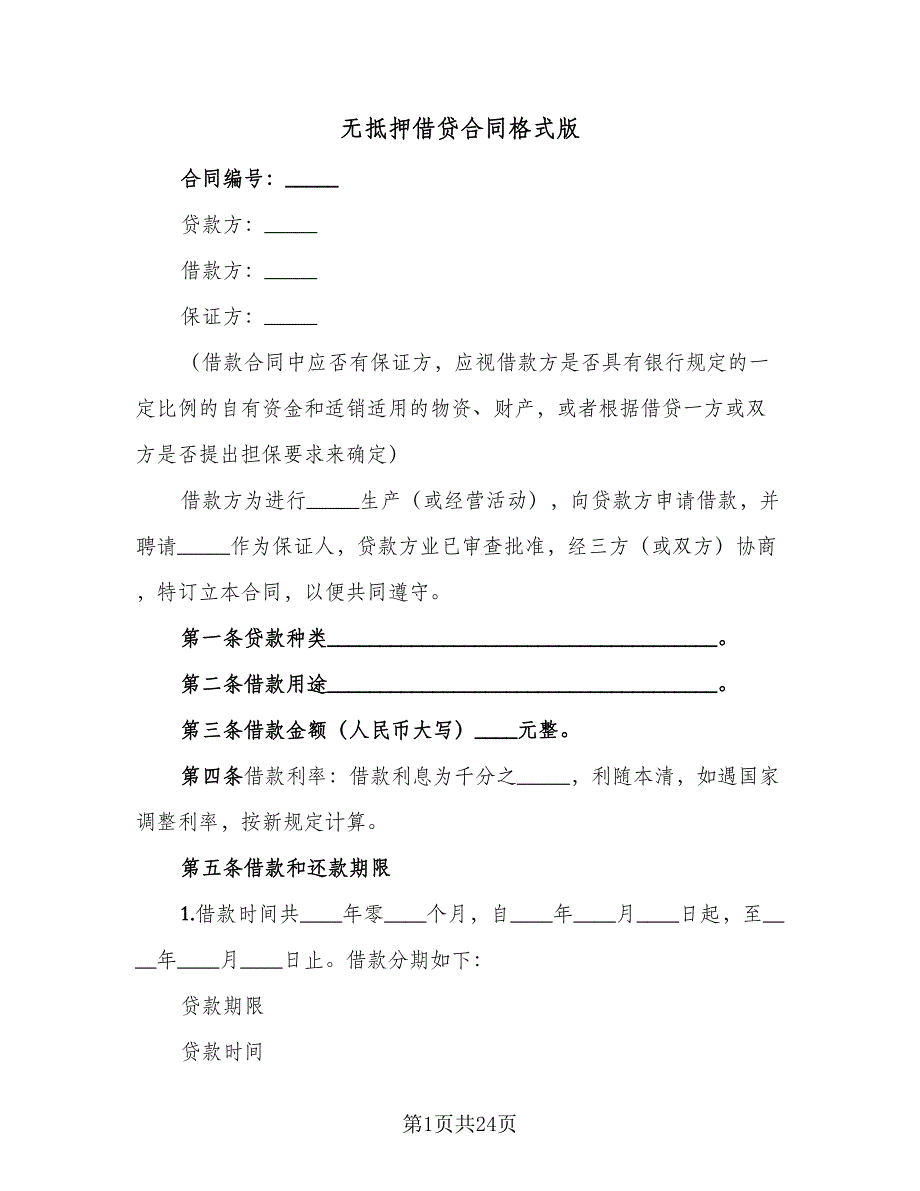 无抵押借贷合同格式版
合同编号：_____
贷款方：_____
借款方：_____
保证方：_____
（借款合同中应否有保证方，应视借款方是否具有银行规定的一
定比例的自有资金和适销适用的物资、财产，或者根据借贷一方或双
方是否提出担保要求来确定）
借款方为进行_____生产（或经营活动），向贷款方申请借款，并
聘请_____作为保证人，贷款方业已审查批准，经三方（或双方）协商
，特订立本合同，以便共同遵守。
第一条贷款种类_____________________________________。
第二条借款用途_____________________________________。
第三条借款金额（人民币大写）____元整。
第四条借款利率：借款利息为千分之_____，利随本清，如遇国家
调整利率，按新规定计算。
第五条借款和还款期限
1.借款时间共____年零____个月，自____年____月____日起，至__
__年____月____日止。借款分期如下：
贷款期限
贷款时间
第1页共24页